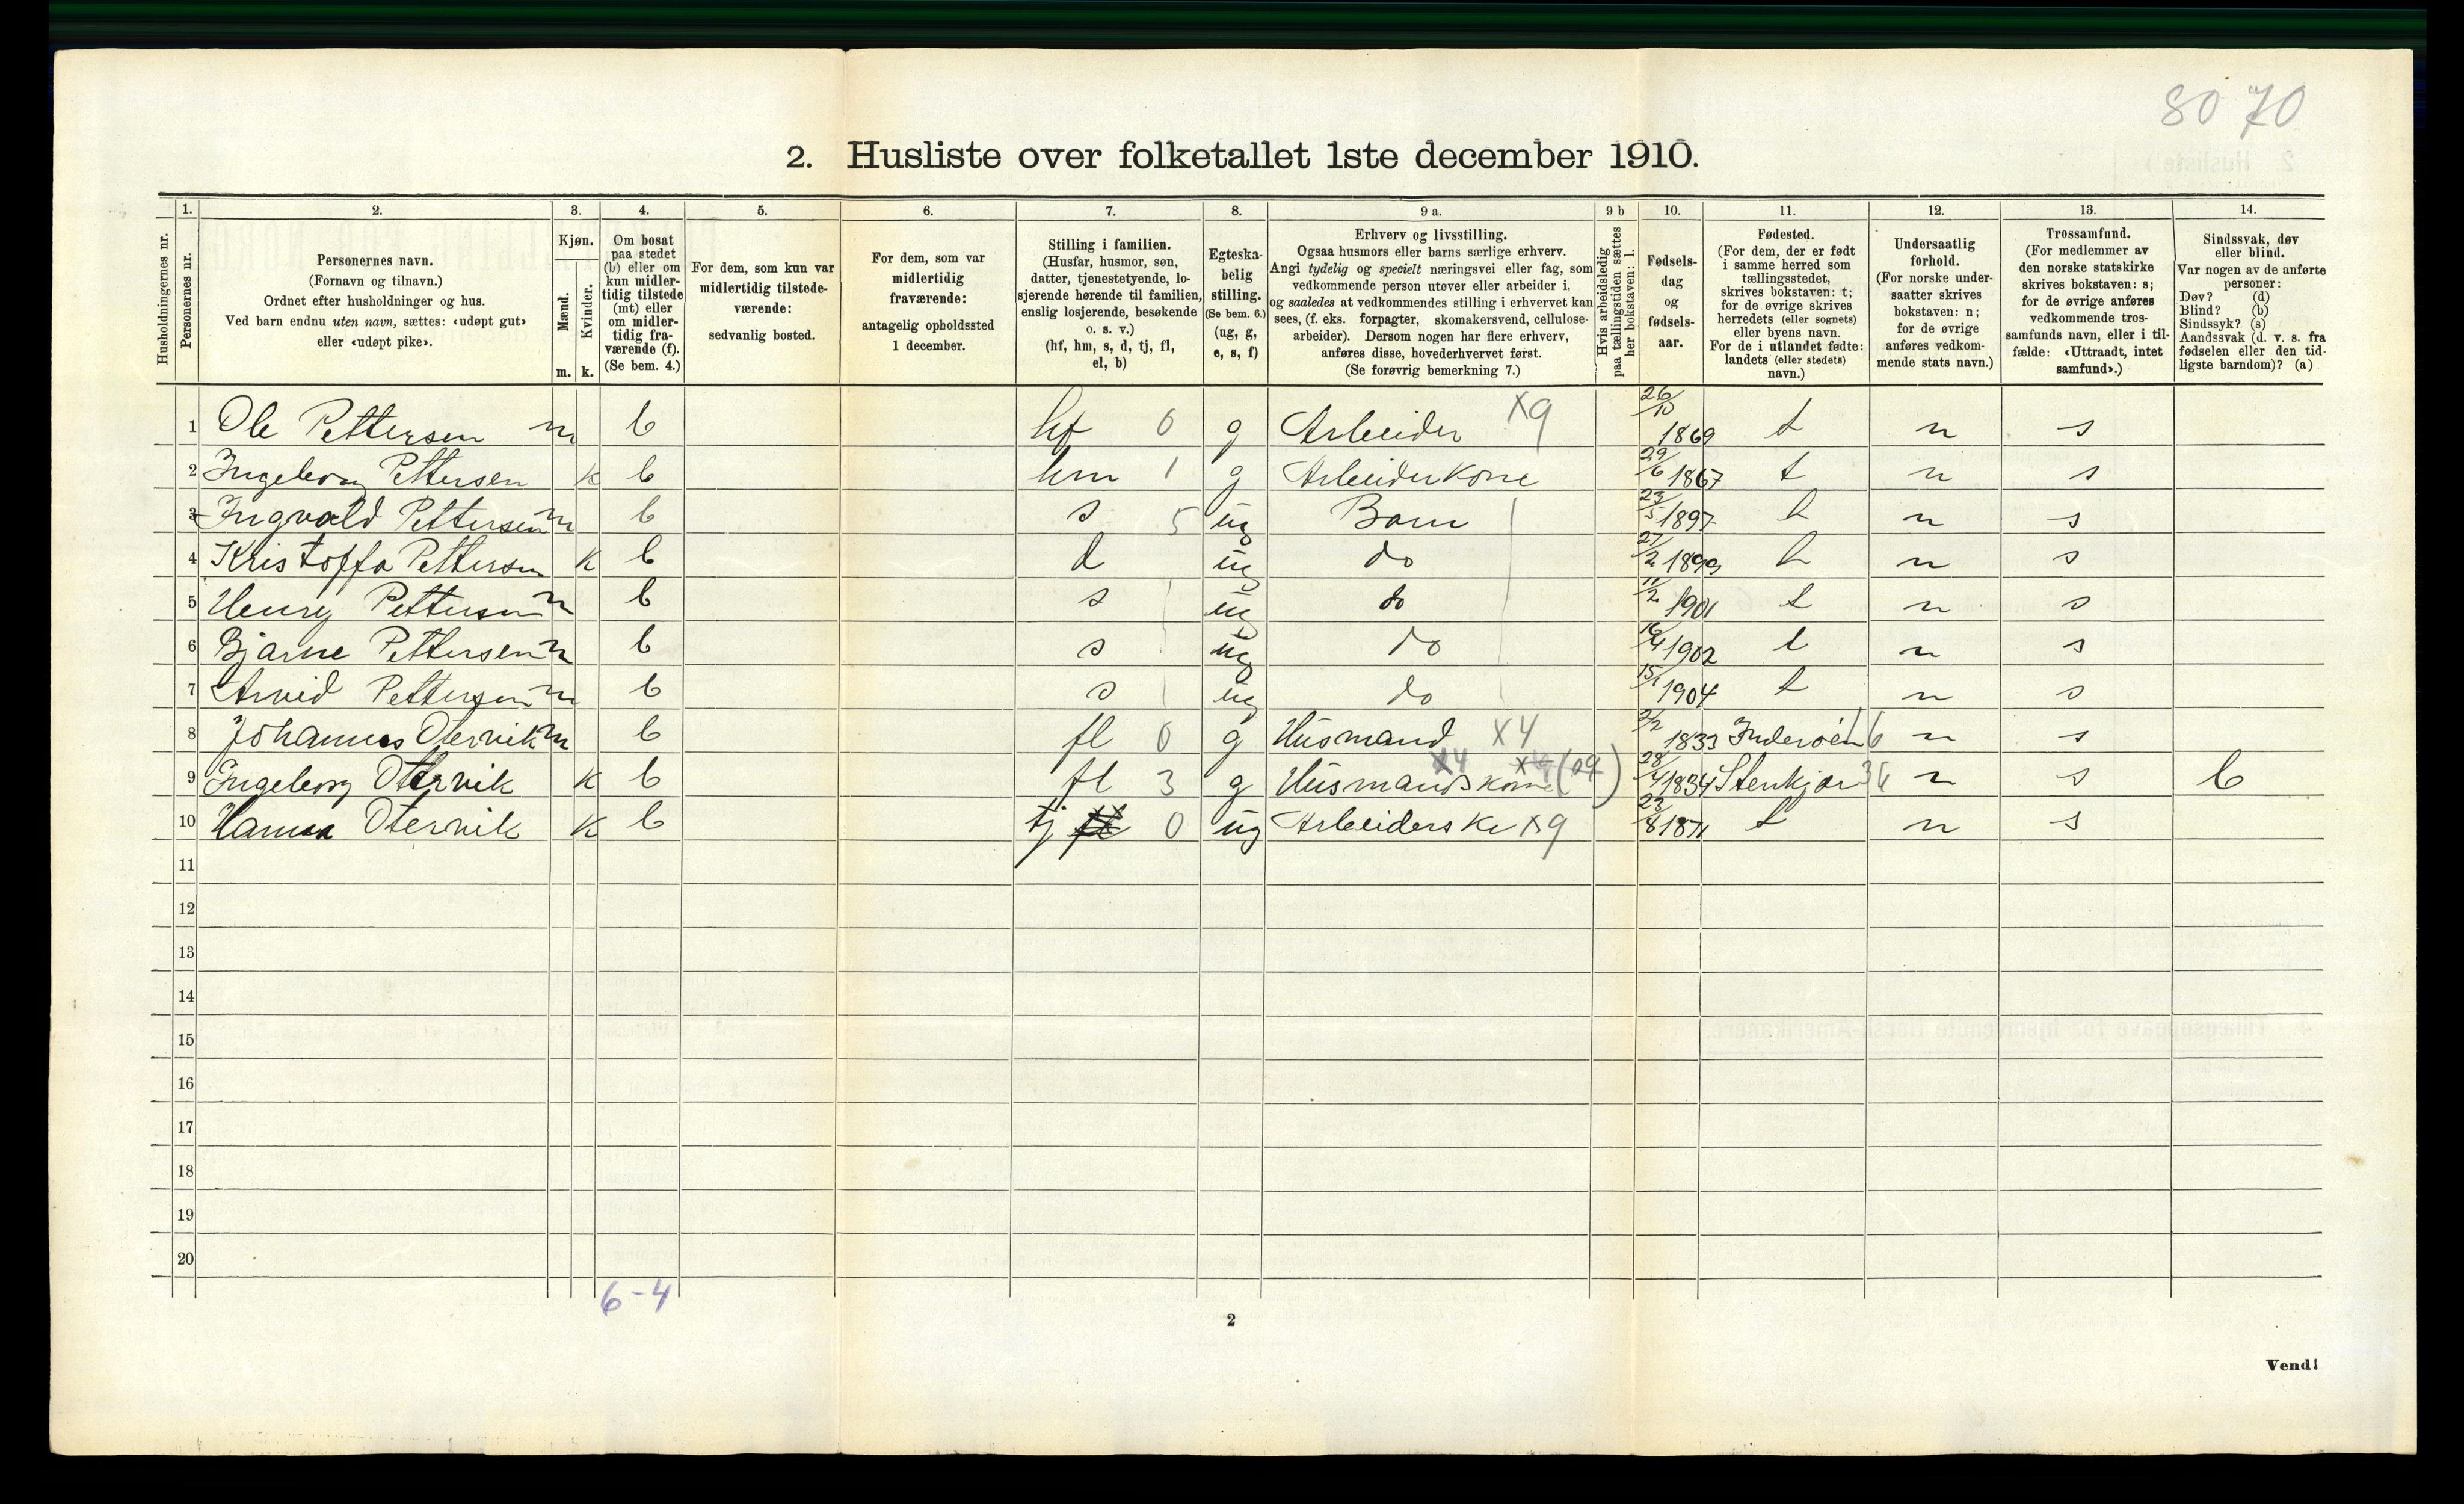 80 70
2. Husliste over folketallet 1ste december 1910.
Husholdningernes nr.
1. Personernes nr.
2. Personernes navn.
(Fornavn og tilnavn.)
Ordnet efter husholdninger og hus.
Ved barn endnu uten navn, sættes: «udøpt gut»
eller «udøpt pike».
3. Kjøn.
Mænd. Kvinder.
m. k.
4. Om bosat
paa stedet
(b) eller om
kun midler-
tidig tilstede
(mt) eller
om midler-
tidig fra-
værende (f).
(Se bem. 4.)
5. For dem, som kun var
midlertidig tilstede-
værende:
sedvanlig bosted.
6. For dem, som var
midlertidig
fraværende:
antagelig opholdssted
1 december.
7. Stilling i familien.
(Husfar, husmor, søn,
datter, tjenestetyende, lo-
sjerende hørende til familien,
enslig losjerende, besøkende
o. s. v.)
(hf, hm, s, d, tj, fl,
el, b)
8. Egteska-
belig
stilling.
(Se bem. 6.)
(ug, g,
e, s, f)
9 a. Erhverv og livsstilling.
Ogsaa husmors eller barns særlige erhverv.
Angi tydelig og specielt næringsvei eller fag, som
vedkommende person utøver eller arbeider i,
og saaledes at vedkommendes stilling i erhvervet kan
sees, (f. eks. forpagter, skomakersvend, cellulose-
arbeider). Dersom nogen har flere erhverv,
anføres disse, hovederhvervet først.
(Se forøvrig bemerkning 7.)
9 b Hvis arbeidsledig
paa tællingstiden sættes
her bokstaven: l.
10. Fødsels-
dag
og
fødsels-
aar.
11. Fødested.
(For dem, der er født
i samme herred som
tællingsstedet,
skrives bokstaven: t;
for de øvrige skrives
herredets (eller sognets)
eller byens navn.
For de i utlandet fødte:
landets (eller stedets)
navn.)
12. Undersaatlig
forhold.
(For norske under-
saatter skrives
bokstaven: n;
for de øvrige
anføres vedkom-
mende stats navn.)
13. Trossamfund.
(For medlemmer av
den norske statskirke
skrives bokstaven: s;
for de øvrige anføres
vedkommende tros-
samfunds navn, eller i til-
fælde: «Uttraadt, intet
samfund».)
14. Sindssvak, døv
eller blind.
Var nogen av de anførte
personer:
Døv? (d)
Blind? (b)
Sindssyk? (s)
Aandssvak (d. v. s. fra
fødselen eller den tid-
ligste barndom)? (a)
1 Ole Pettersen m b hf 0 g Arbeider X9 26/10 1869 t n s
2 Ingeborg Pettersen k b hm 1 g Arbeiderkone 29/6 1867 t n s
3 Ingvald Pettersen m b s 5 ug Barn 23/5 1897 t n s
4 Kristoffa Pettersen k b d ug do 27/2 1899 t n s
5 Henry Pettersen m b s ug do 11/2 1901 t n s
6 Bjarne Pettersen m b s ug do 16/4 1902 t n s
7 Arvid Pettersen m b s ug do 15/1 1904 t n s
8 Johannes Otervik m b fl 0 g Husmand X4 2/2 1833 Inderøen 16 n s
9 Ingeborg Otervik k b fl 3 g Husmandskone X4 (09) 28/4 1834 Stenkjær n s b
10 Hanna Otervik k b tj fl 0 ug Arbeiderske X9 23/8 1871 t n s
11
12
13
14
15
16
17
18
19
20
6-4
2
Vend!